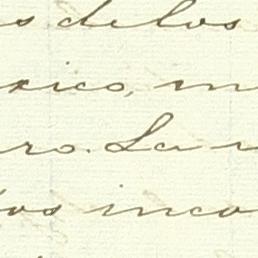 s de los
xico, m
ro. La
os inco